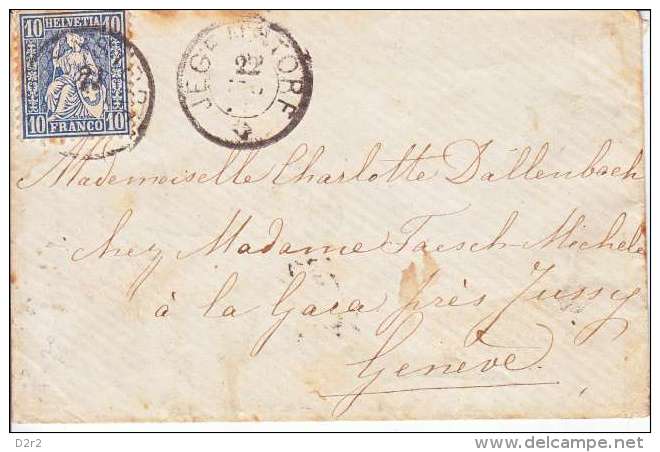 10 HELVETIA 10
10 FRANCO 10
22
JEGENSTORF
22
Mademoiselle Charlotte Dällenbach
chez Madame Taesch-Michele
à la Gara près Jussy
Genève.
D2r2
www.delcampe.net